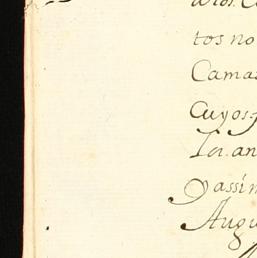 tos no
Cama
Cuyos
Ior. an
y assim
Augu